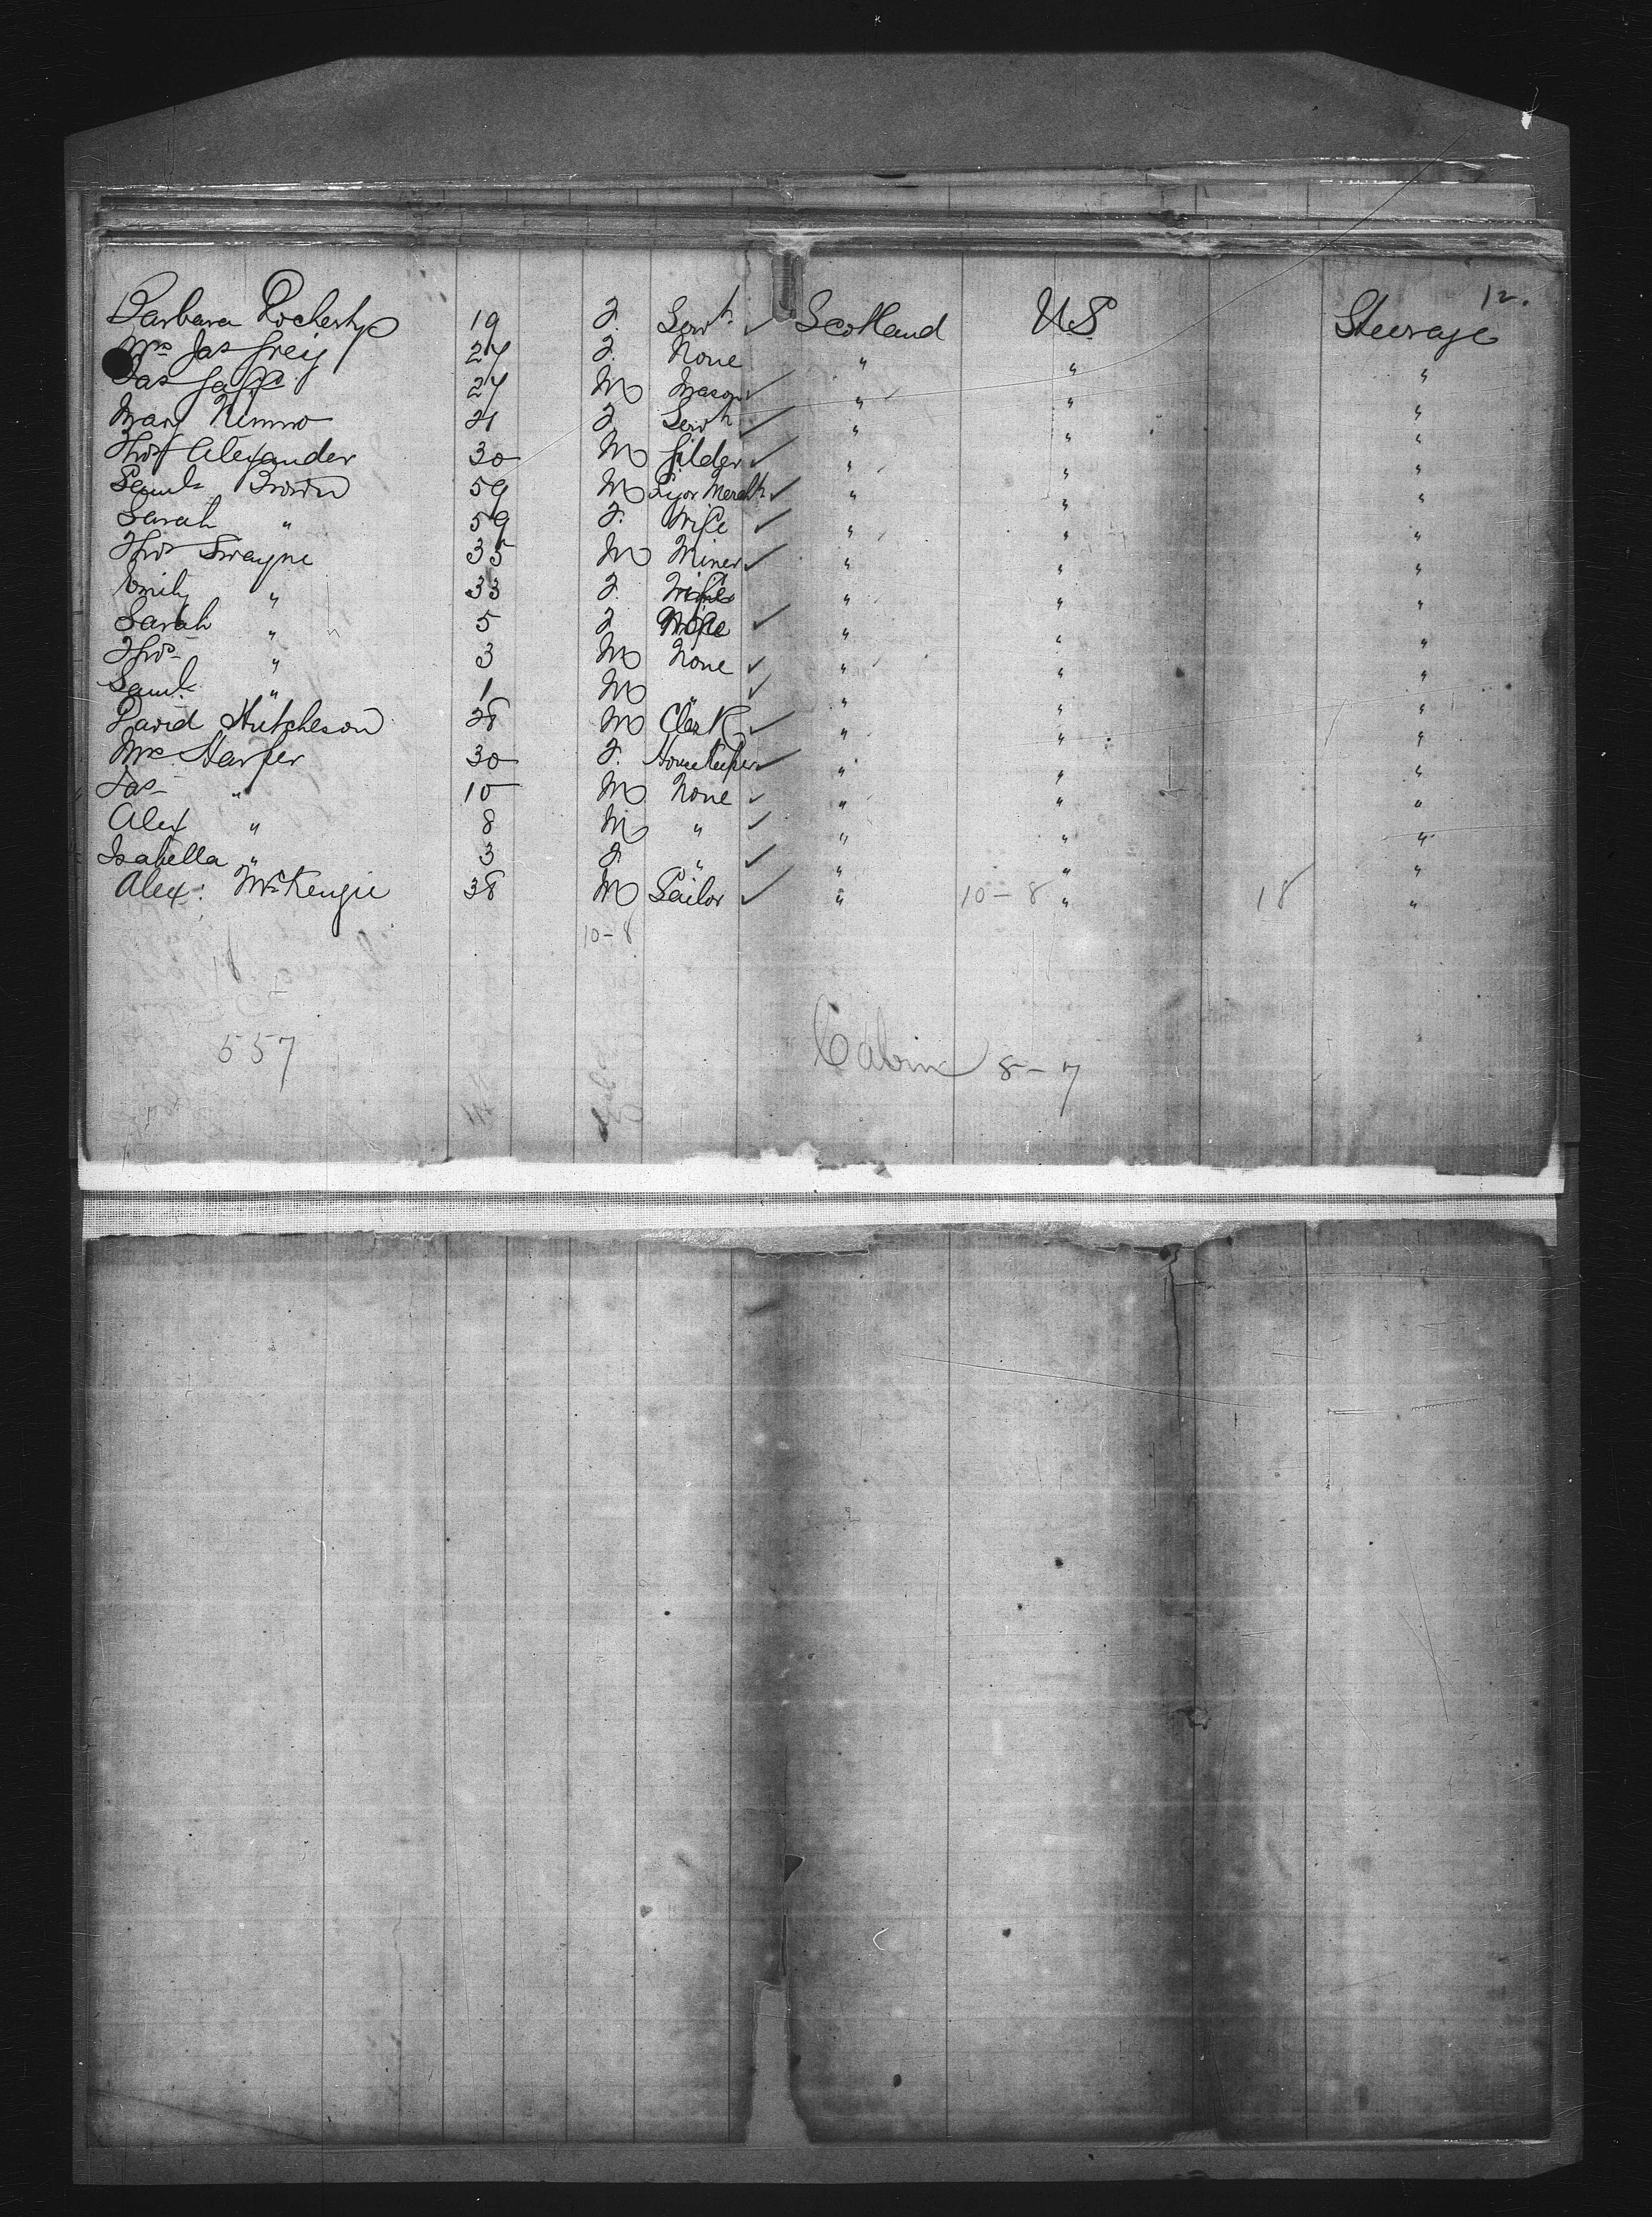 12.
Barbara 19 F. Servt ✓ Scotland U.S. Steerage
Mrs Jas Greig 27 F. None " " "
Jas Jaffe 27 M Mason ✓ " " "
Mary Nimmo 21 F. Servt ✓ " " "
Thos Alexander 30 M Gilder ✓ " " "
Saml Brown 59 M Liqor Mercht ✓ " " "
Sarah " 59 F. Wife ✓ " " "
Thos Swayne 35 M Miner ✓ " " "
Emily " 33 F. Wife " " "
Sarah " 5 F ✓ " " "
Thos " 3 M None ✓ " " "
Saml " 1 M " ✓ " " "
David Hutcheson 28 M Clerk ✓ " " "
Mrs Harper 30 F. Housekeeper ✓ " " "
Jas " 10 M None ✓ " " "
Alex " 8 M " ✓ " " "
Isabella " 3 F. " ✓ " " "
Alex: McKenzie 38 M Sailor ✓ " 10-8 " 18 "
10-8
18
557
Cabin 8-7